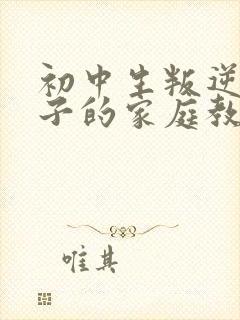 初中生叛逆
子的家庭教
唯其